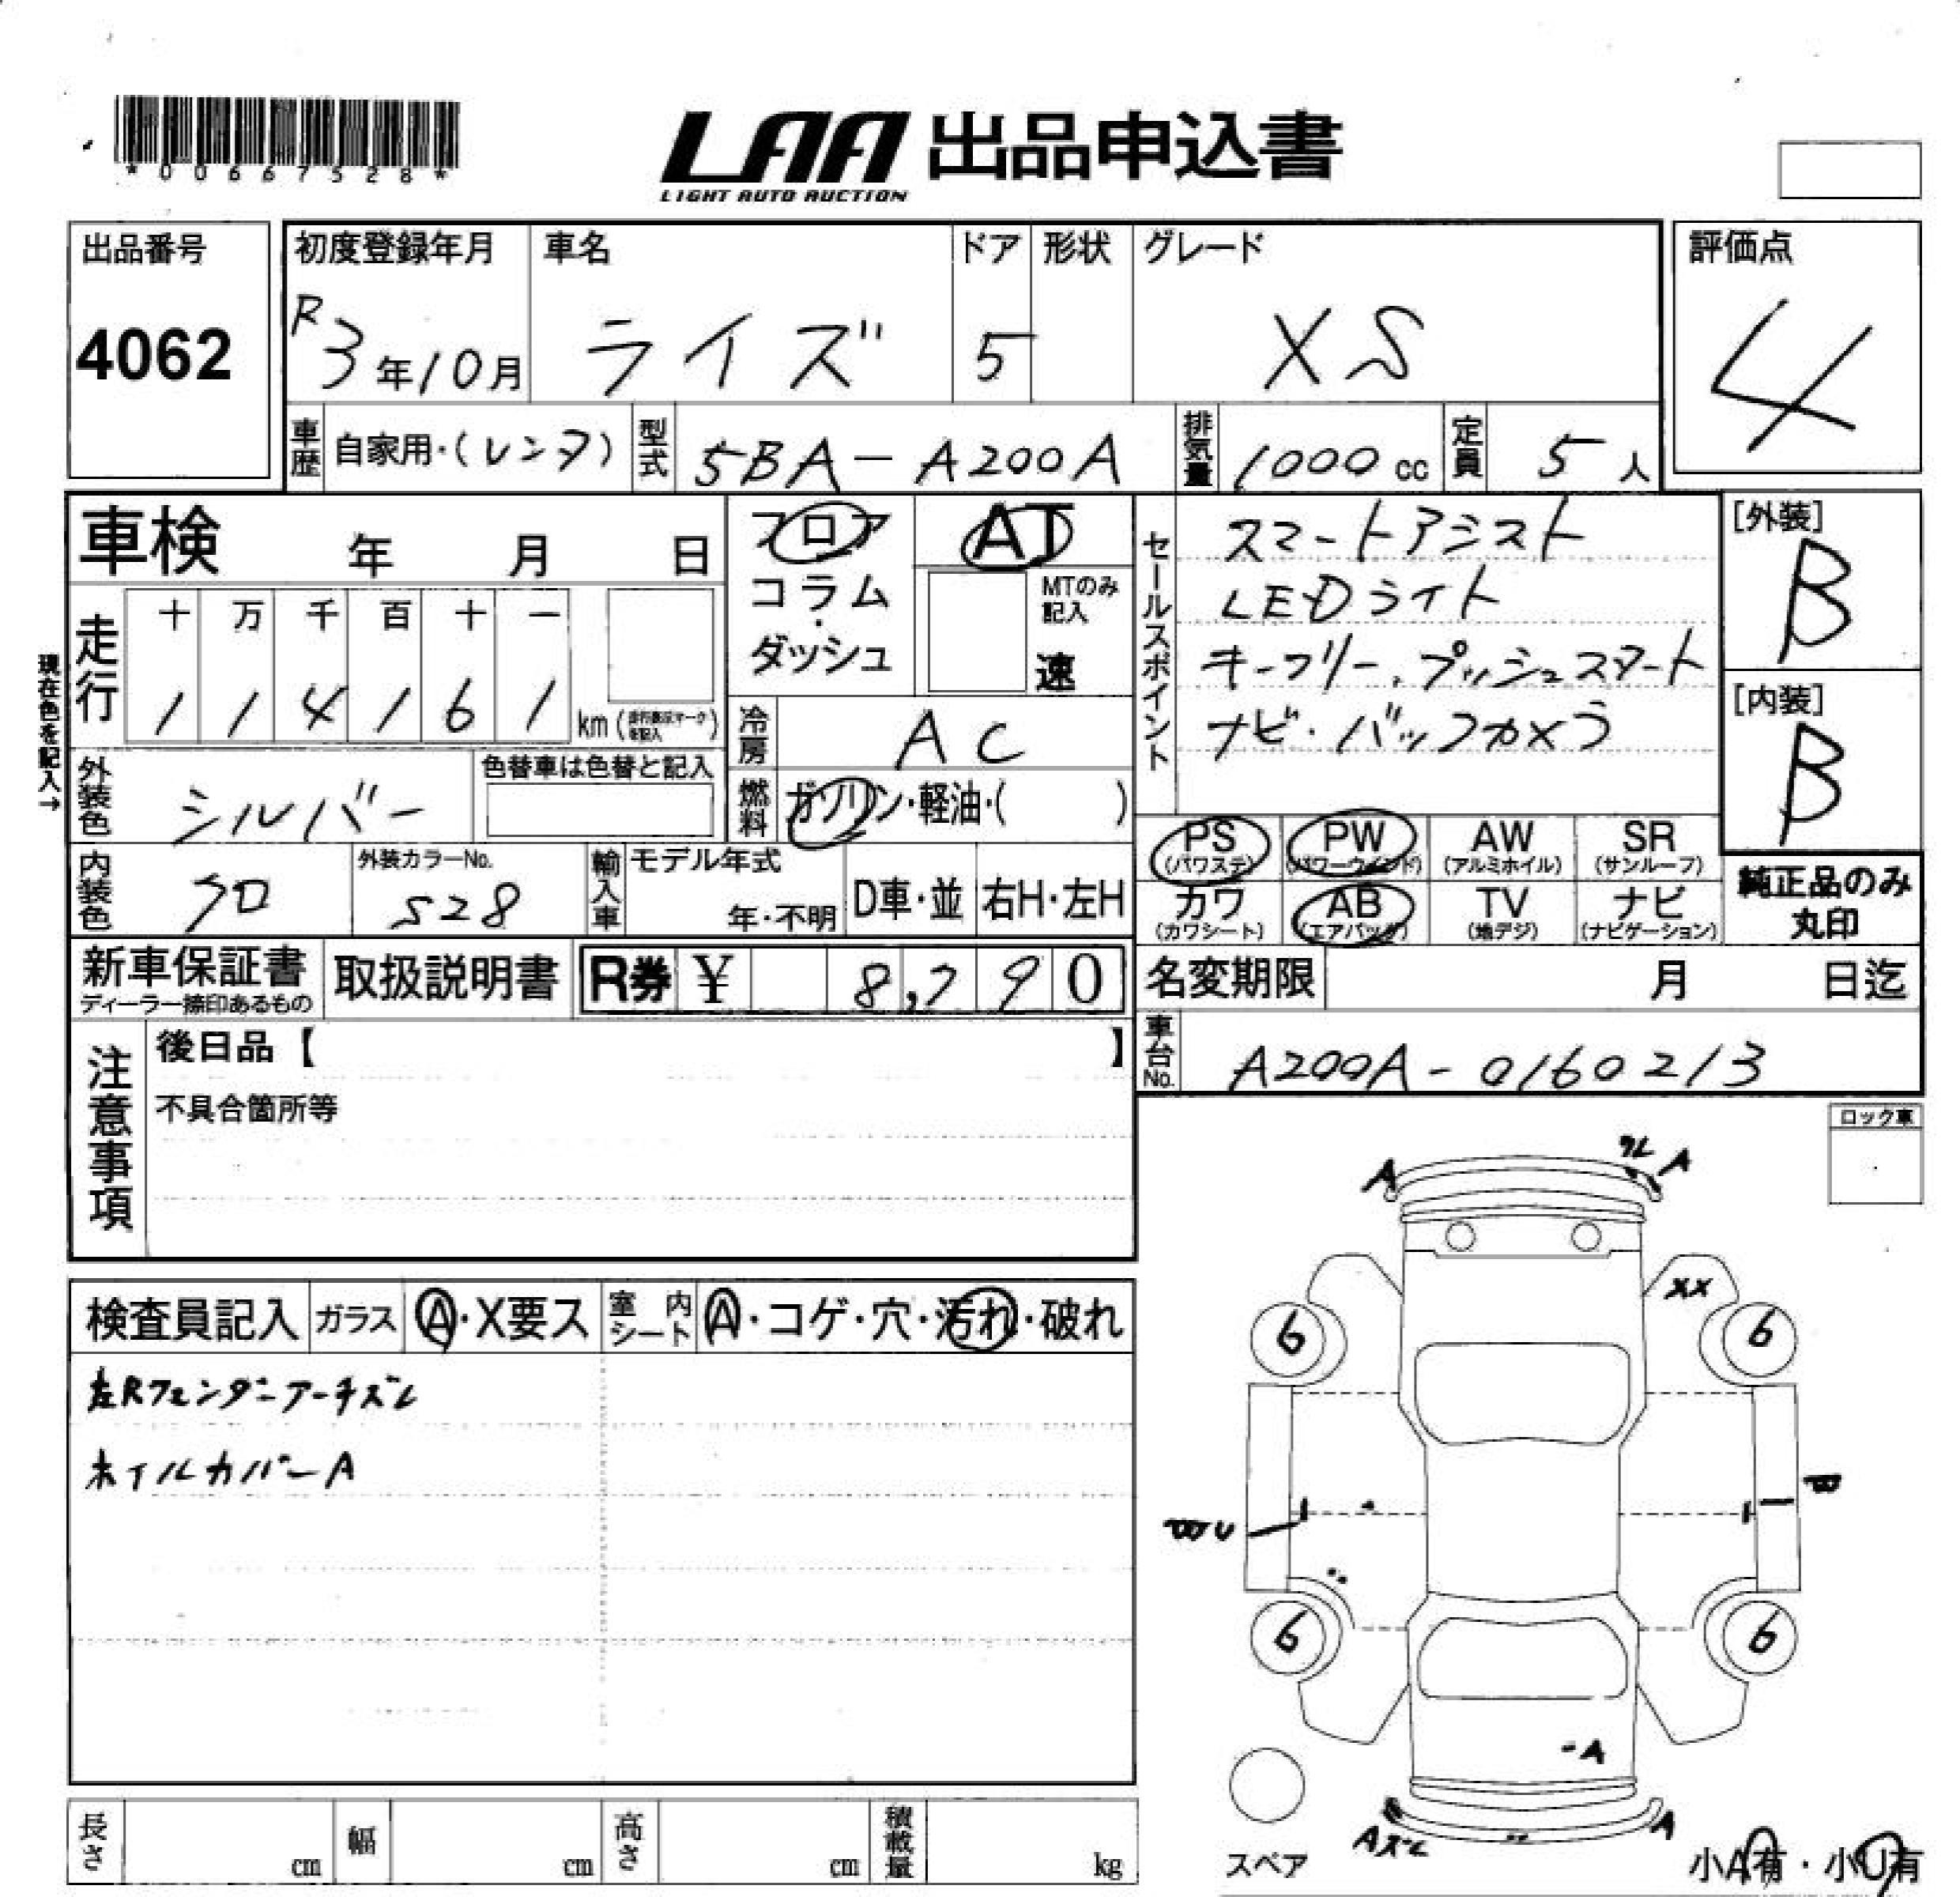 *00667528*
LAA 出品申込書
LIGHT AUTO AUCTION
出品番号
4062
初度登録年月
R3年10月
車名
ライズ
ドア
5
形状
グレード
XS
評価点
4
車歴
自家用・(レンタ)
型式
5BA-A200A
排気量
1000 cc
定員
5人
車検 年 月 日
現在色を記入→
走行
十 万 千 百 十 一
1 1 4 1 6 1 km
フロア
コラム
・
ダッシュ
AT
MTのみ
記入
速
冷房
AC
燃料
ガソリン・軽油・( )
セールスポイント
スマートアシスト
LEDライト
キーフリー、プッシュスタート
ナビ・バックカメラ
[外装]
B
[内装]
B
外装色
シルバー
色替車は色替と記入
内装色
クロ
外装カラーNo.
S28
輸入車
モデル年式
年・不明
D車・並
右H・左H
PS
(パワステ)
PW
(パワーウインド)
AW
(アルミホイル)
SR
(サンルーフ)
カワ
(カワシート)
AB
(エアバッグ)
TV
(地デジ)
ナビ
(ナビゲーション)
純正品のみ
丸印
新車保証書
ディーラー捺印あるもの
取扱説明書
R券 ¥ 8,790
名変期限 月 日迄
車台No.
A200A-0160213
注意事項
後日品【 】
不具合箇所等
ロック車
検査員記入
ガラス
A・X要ス
室内シート
A・コゲ・穴・汚れ・破れ
左Rフェンダーアーチズレ
ホイルカバーA
A
A
XX
6
6
B
6
6
-A
A
Aズレ
スペア
小A有・小U有
長さ cm
幅 cm
高さ cm
積載量 kg